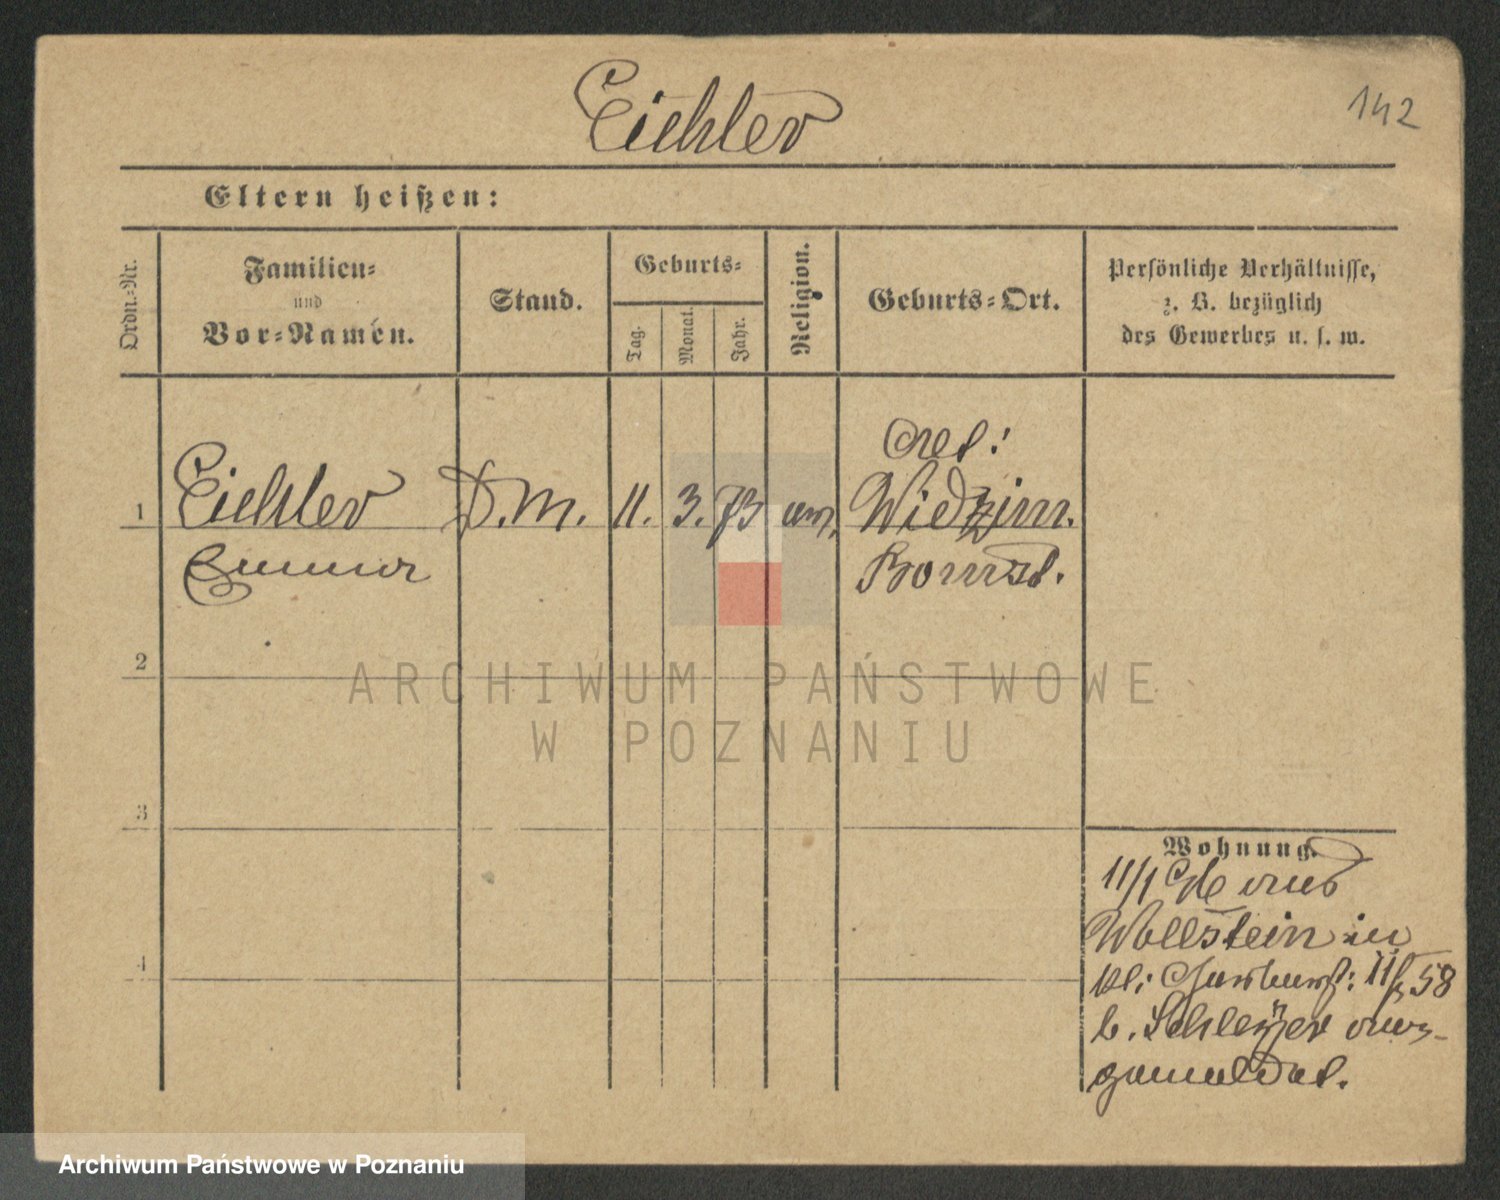 Eichler
142
Eltern heißen:
Ordn.-Nr.
Familien-
und
Vor-Namen.
Stand.
Geburts-
Tag.
Monat.
Jahr.
Religion.
Geburts-Ort.
Persönliche Verhältnisse,
z. B. bezüglich
des Gewerbes u. s. w.
1
Eichler
D. M.
11.
3.
73
Widzim.
Emma
Bomst.
2
3
4
Wohnung.
11/1 aus
Wollstein in
58
b.
gemeldet.
ARCHIWUM PAŃSTWOWE
W POZNANIU
Archiwum Państwowe w Poznaniu